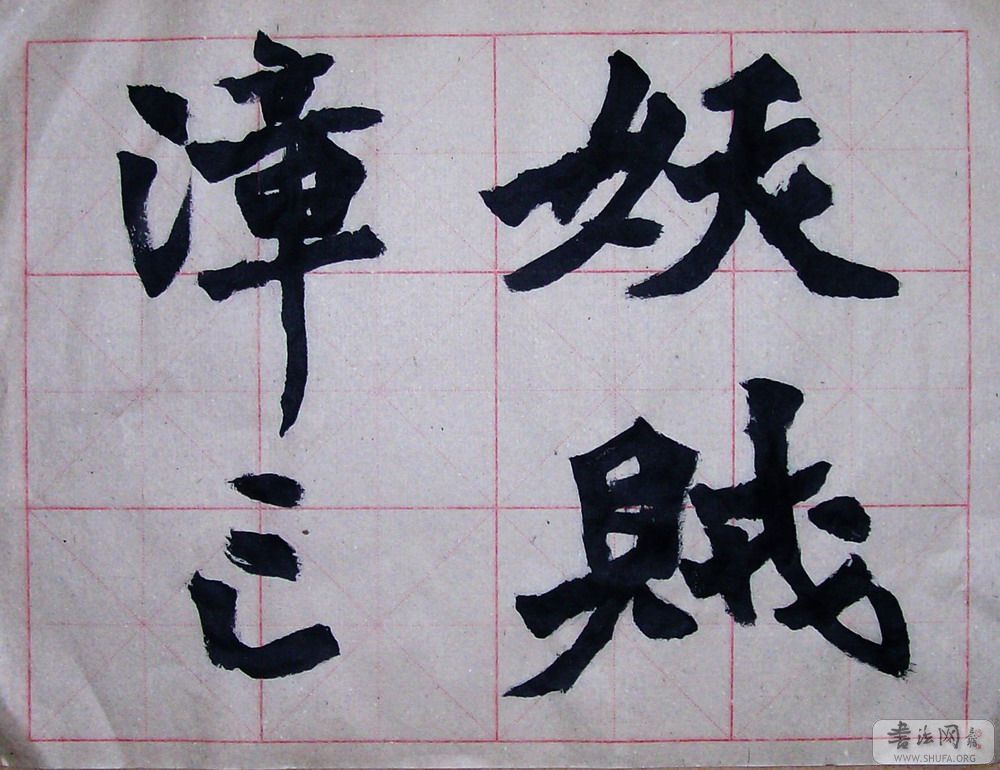 妖賊
漳
書法网
WWW.SHUFA.ORG